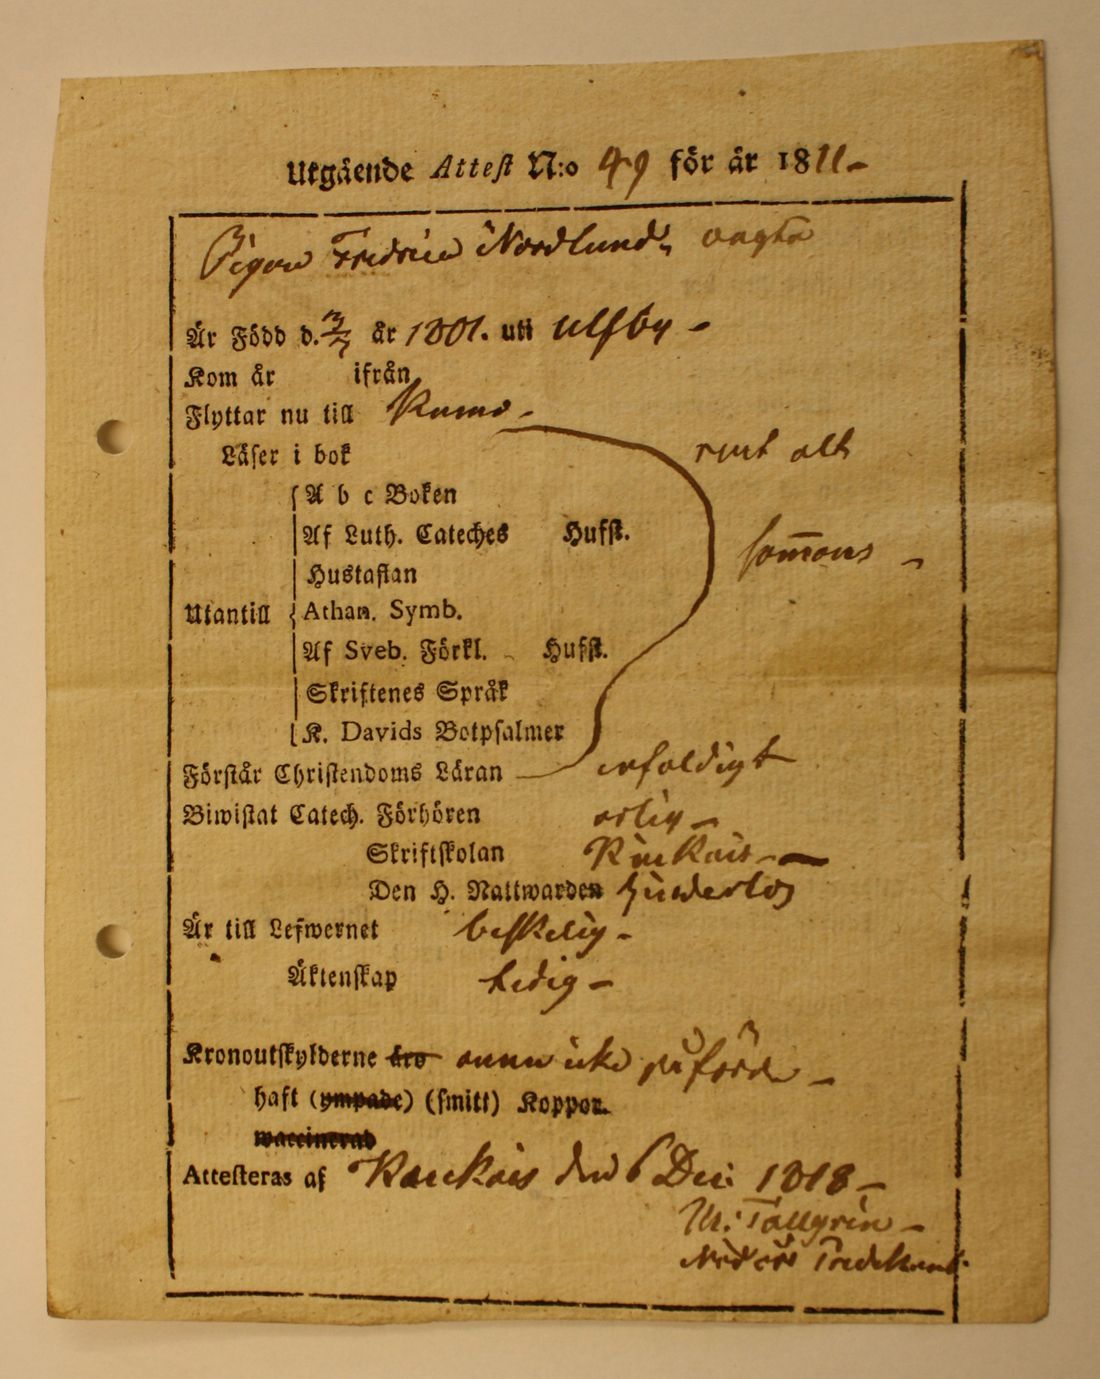 Utgående Attest N:o 49 för år 1811-
Pigan Fredrica Nordlund,
Är Född d. 3/7 år 1801. uti Ulfsby -
Kom år ifrån
Flyttar nu till Kumo -
Läser i bok rent alt
A b c Boken
Af Luth. Cateches Hufst.
Hustaflan sammans -
Utantill Athan. Symb.
Af Sveb. Förkl. Hufst.
Skriftenes Språk
K. Davids Botpsalmer
Förstår Christendoms Läran enfaldigt
Biwistat Catech. Förhören årlig -
Skriftskolan
Den H. Nattwarden hinderlös
Är till Lefwernet beskelig -
Äktenskap Ledig -
Kronoutskylderne äro ännu icke påförde -
haft (ympade) (smitt) Koppor.
waccinerad
Attesteras af den 6 Dec: 1818 -
M: Tallgren -